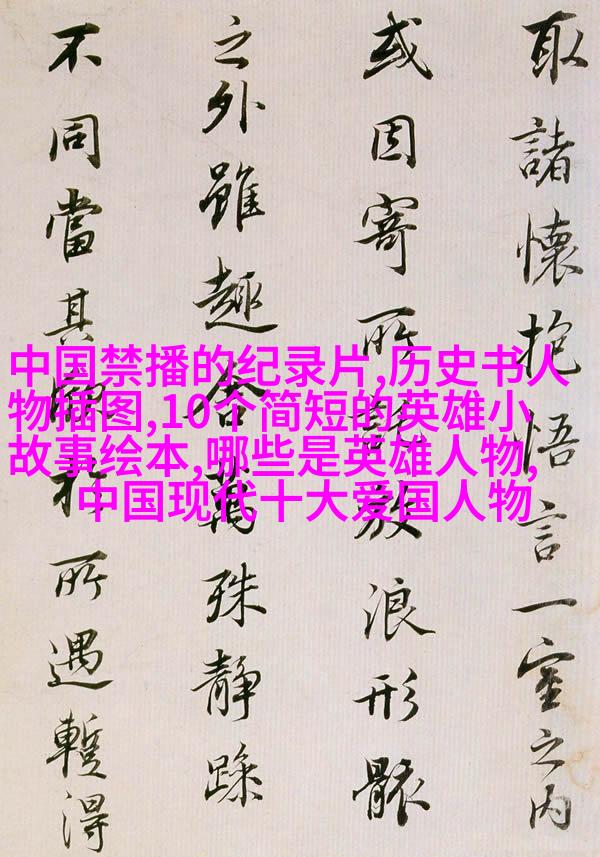 取諸懷抱悟言一室之内
或因寄所託放浪形骸
之外雖趣舍萬殊静躁
不同當其欣於所遇蹔得
中国禁播的纪录片,历史书人
物插图,10个简短的英雄小
故事绘本,哪些是英雄人物,
中国现代十大爱国人物